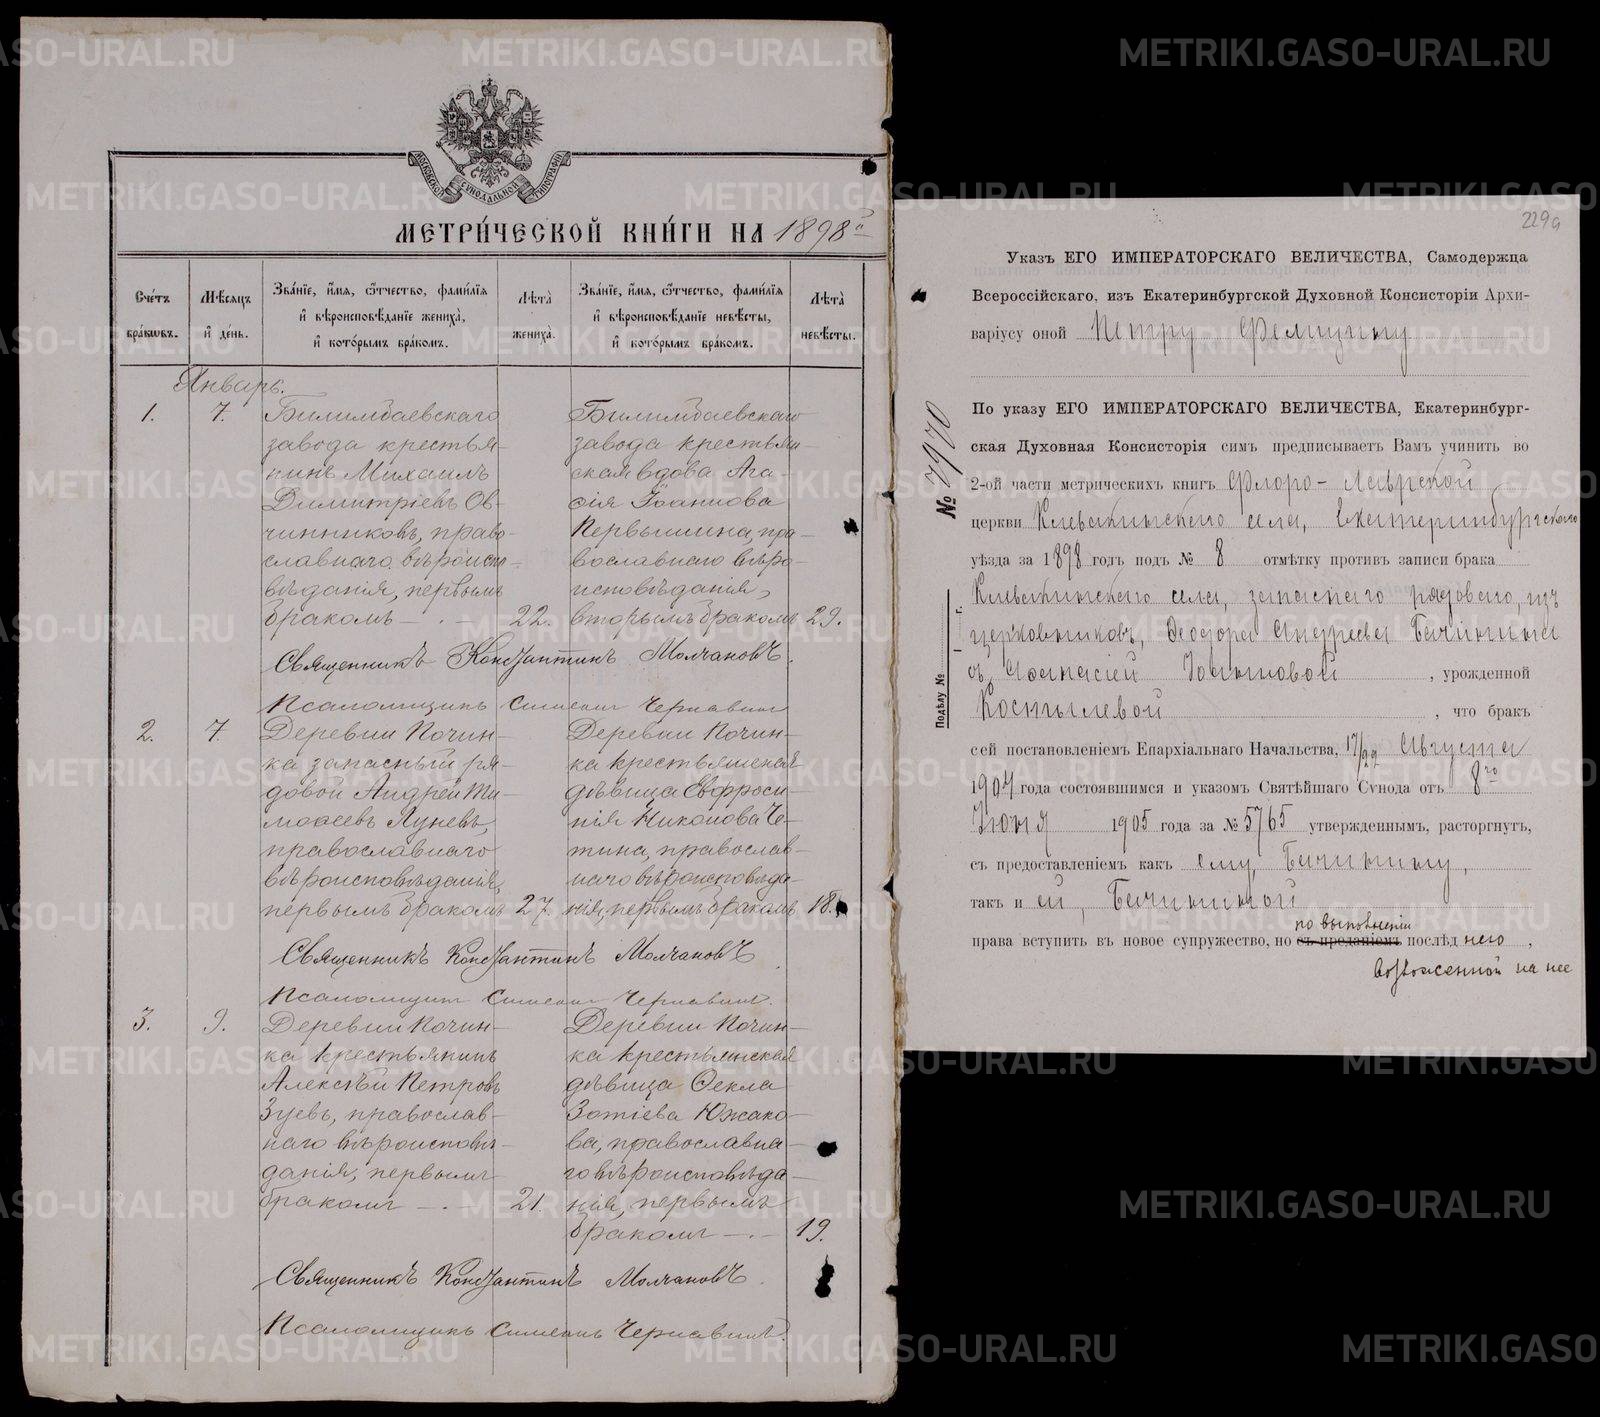 МОСКОВСКОЙ СѴНОДАЛЬНОЙ ТИПОГРАФІИ
МЕТРИ́ЧЕСКОЙ КНИ́ГИ НА 1898 г.
Сче́тъ бра́кωвъ.
Мѣ́сѧцъ и҆ де́нь.
Зва́нїе, и҆́мѧ, ѻ҆́тчество, фами́лїѧ и҆ вѣроисповѣ́данїе жениха̀, и҆ кото́рымъ бра́комъ.
Лѣ́та жениха̀.
Зва́нїе, и҆́мѧ, ѻ҆́тчество, фами́лїѧ и҆ вѣроисповѣ́данїе невѣ́сты, и҆ кото́рымъ бра́комъ.
Лѣ́та невѣ́сты.
Январь.
1. 7.
Билимбаевскаго
завода крестья-
нинъ Михаилъ
Димитріевъ Ов-
чинниковъ, право-
славнаго вѣроиспо-
вѣданія, первымъ
бракомъ 22.
Билимбаевскаго
завода крестьян-
ская вдова Ага-
сія Іоаннова
Первышина, пра-
вославнаго вѣро-
исповѣданія,
вторымъ бракомъ 29.
Священникъ Константинъ Молчановъ.
Псаломщикъ Симеонъ Чернавинъ
2. 7.
Деревни Почин-
ка запасный ря-
довой Андрей Ти-
моѳеевъ Луневъ,
православнаго
вѣроисповѣданія,
первымъ бракомъ 27.
Деревни Почин-
ка крестьянская
дѣвица Евфроси-
нія Никонова Че-
тина, православ-
наго вѣроисповѣда-
нія, первымъ бракомъ 18.
Священникъ Константинъ Молчановъ.
Псаломщикъ Симеонъ Чернавинъ.
3. 9.
Деревни Почин-
ка крестьянинъ
Алексѣй Петровъ
Зуевъ, православ-
наго вѣроисповѣ-
данія, первымъ
бракомъ 21.
Деревни Почин-
ка крестьянская
дѣвица Ѳекла
Зотіева Южако-
ва, православна-
го вѣроисповѣда-
нія, первымъ
бракомъ 19.
Священникъ Константинъ Молчановъ.
Псаломщикъ Симеонъ Чернавинъ.
229а
Указъ ЕГО ИМПЕРАТОРСКАГО ВЕЛИЧЕСТВА, Самодержца
Всероссійскаго, изъ Екатеринбургской Духовной Консисторіи Архи-
варіусу оной Петру Фелицину
По указу ЕГО ИМПЕРАТОРСКАГО ВЕЛИЧЕСТВА, Екатеринбург-
ская Духовная Консисторія симъ предписываетъ Вамъ учинить во
2-ой части метрическихъ книгъ Флоро-Лаврской
церкви Клевакинскаго села, Екатеринбургскаго
уѣзда за 1898 годъ подъ № 8 отмѣтку противъ записи брака
Клевакинскаго села, запаснаго рядоваго, изъ
церковниковъ, Ѳеодора Андреева Бачинина
съ Аѳанасіей Іоанновой, урожденной
Костылевой, что бракъ
сей постановленіемъ Епархіальнаго Начальства, 17/22 Августа
1904 года состоявшимся и указомъ Святѣйшаго Сѵнода отъ 8го
Іюня 1905 года за № 5765 утвержденнымъ, расторгнутъ,
съ предоставленіемъ какъ ему, Бачинину,
такъ и ей, Бачининой
по выполненіи
права вступить въ новое супружество, но съ преданіемъ послѣд него,
возложенной на нее
№ 7970
По дѣлу № 1 г.
METRIKI.GASO-URAL.RU